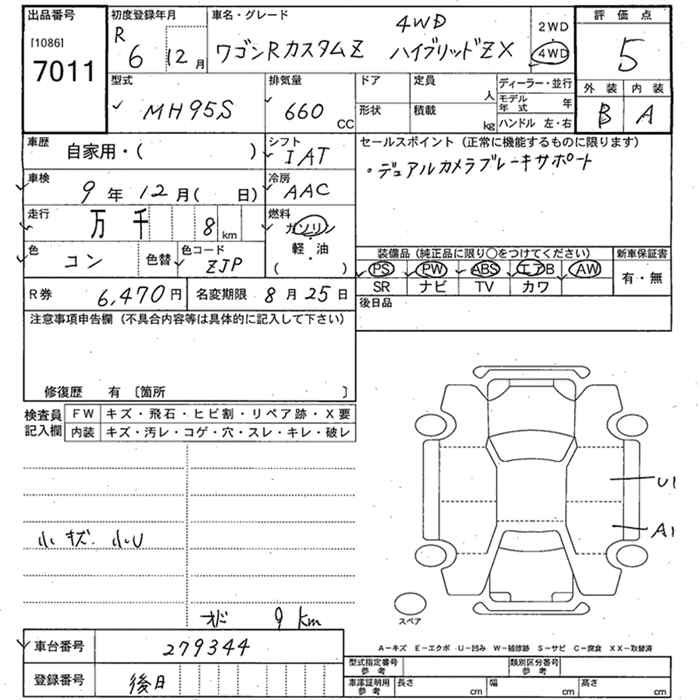 出品番号
[1086]
7011
初度登録年月
R 6年 12月
車名・グレード
4WD
ワゴンRカスタムZ ハイブリッドZX
2WD
4WD
評価点
5
外装 内装
B A
型式
MH95S
排気量
660 CC
ドア 定員 人
形状 積載 kg
ディーラー・並行
モデル年式 年
ハンドル 左・右
車歴
自家用・( )
シフト
IAT
セールスポイント (正常に機能するものに限ります)
・デュアルカメラブレーキサポート
車検
9年 12月( 日)
冷房
AAC
走行
万 千 8 km
燃料
ガソリン
軽・油
( )
色
コン
色替
色コード
ZJP
装備品 (純正品に限り○をつけてください)
新車保証書
PS PW ABS エアB AW
SR ナビ TV カワ
有・無
R券
6,470円
名変期限 8月25日
後日品
注意事項申告欄 (不具合内容等は具体的に記入して下さい)
修復歴 有 〔箇所 〕
検査員記入欄
FW キズ・飛石・ヒビ割・リペア跡・X要
内装 キズ・汚レ・コゲ・穴・スレ・キレ・破レ
U1
A1
小キズ. 小U
オド 9km
スペア
A-キズ E-エクボ U-凹み W-補修跡 S-サビ C-腐食 XX-取替済
車台番号
279344
登録番号
後日
型式指定番号 参考
類別区分番号 参考
車庫証明用 参考
長さ cm 幅 cm 高さ cm